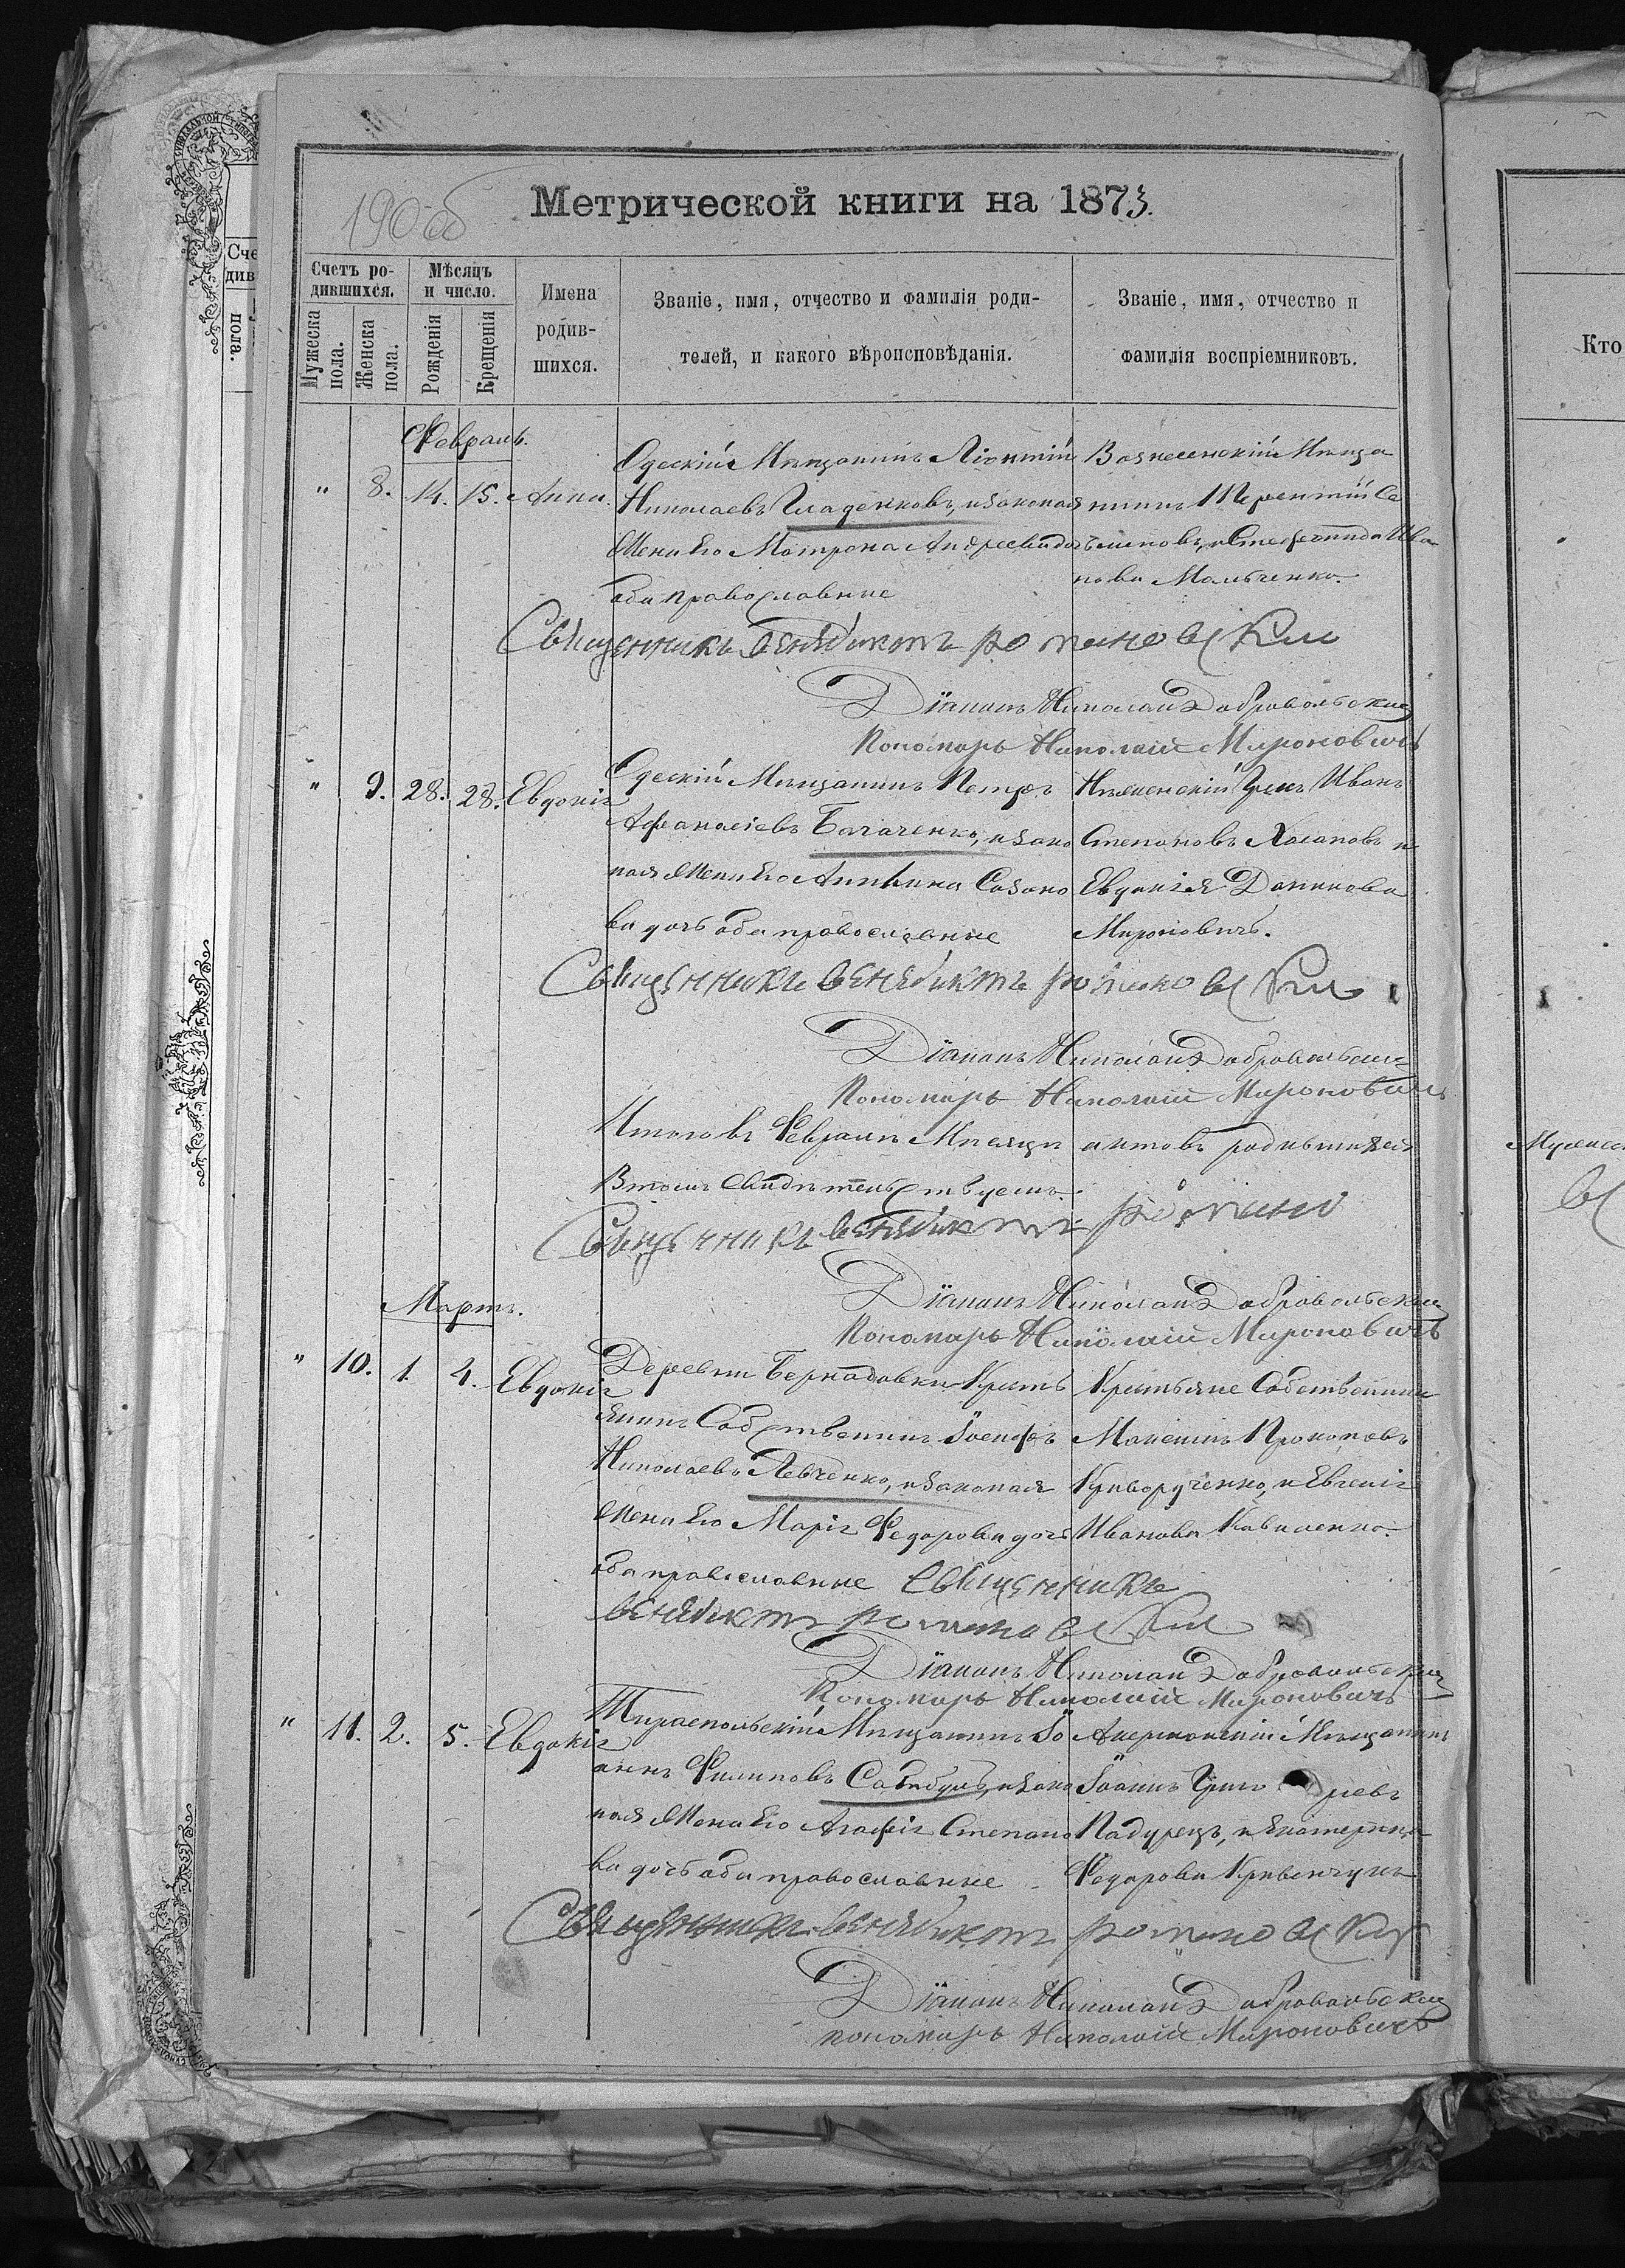 190 об
Метрической книги на 1873.
Счетъ ро-
дившихся.
Мѣсяцъ
и число.
Мужеска
пола.
Женска
пола.
Рожденія
Крещенія
Имена
родив-
шихся.
Званіе, имя, отчество и фамилія роди-
телей, и какого вѣроисповѣданія.
Званіе, имя, отчество и
фамилія воспріемниковъ.
Кто
Февраль.
" 8. 14. 15. Анна.
Одескій Мѣщанинъ Леонтій
Николаевъ Гладенковъ, изаконая
Жена Его Матрона Андреева дочь
оба православные
Вознесенскій Мѣща
нинъ Терентій Се
меновъ, и Стефанида Ива
нова Мальченко.
Священникъ Венедиктъ Романовский
Діаконъ Николай Добровольский
Пономарь Николай Мироновичъ
" 9. 28. 28. Евдокія
Одескій Мѣщанинъ Петръ
Афанасіевъ Багаченко, изако
ная Жена Его Анна Созоно
ва дочь оба православные
Нѣженскій Грекъ Иванъ
Степановъ Хасаповъ и
Евдокія Данилова
Мироновичъ.
Священникъ Венедиктъ Романовский
Діаконъ Николай Добровольский
Пономарь Николай Мироновичъ
Итого въ Февралѣ Мѣсяцѣ актовъ родившихся
Мужеск
Втомъ Свидѣтельствуемъ.
Священникъ Венедиктъ Романо
Діаконъ Николай Добровольский
Пономарь Николай Мироновичъ
Мартъ.
" 10. 1. 4. Евдокія
Деревни Бернадовки Кресть
янинъ Собственникъ Іосифъ
Николаевъ Левченко, изаконая
Жена Его Марія Федорова дочь
оба православные
Крестьяне Собственники
Максимъ Прокопіевъ
Криворученко, и Евгенія
Иванова Коваленко.
Священникъ
Венедиктъ Романовский
Діаконъ Николай Добровольский
Пономарь Николай Мироновичъ
" 11. 2. 5. Евдокія
Тираспольскій Мѣщанинъ Іо
аннъ Филиповъ изако
ная Жена Его Агафія Степано
ва дочь оба православные
Акерманскій Мѣщанинъ
Іоаннъ Григорьевъ
Падурецъ, и Екатерина
Федорова
Священникъ Венедиктъ Романовский
Діаконъ Николай Добровольский
пономарь Николай Мироновичъ